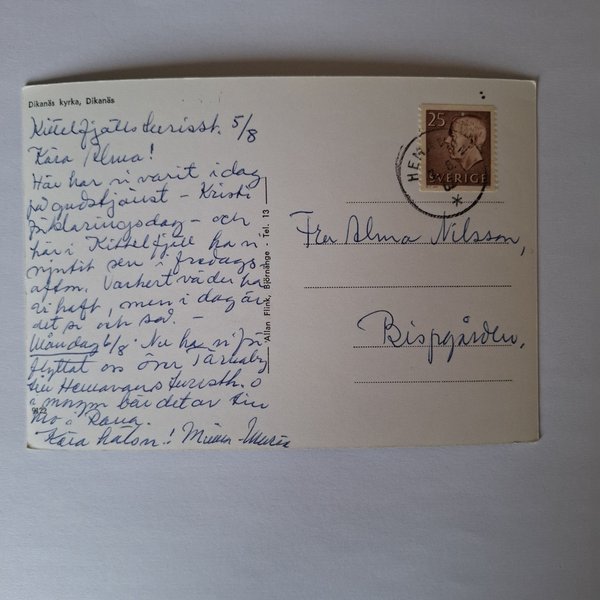 Dikanäs kyrka, Dikanäs
Kittelfjälls turistst. 5/8
Kära Alma!
Här har vi varit i dag
på gudstjänst - Kristi
förklaringsdag - och
här i Kittelfjäll ha vi
njutit sen i fredags
afton. Vackert väder ha
vi haft, men i dag är
det si och så. -
Måndag 6/8. Nu ha vi
flyttat oss över Tärnaby
till Hemavans turisth. o
i morgon bär det av till
Mo i Rana.
Kära hälsn.!
Allan Flink, Björnänge - Tel. 13
25
SVERIGE
HEM
Fru Alma Nilsson,
Bispgården,